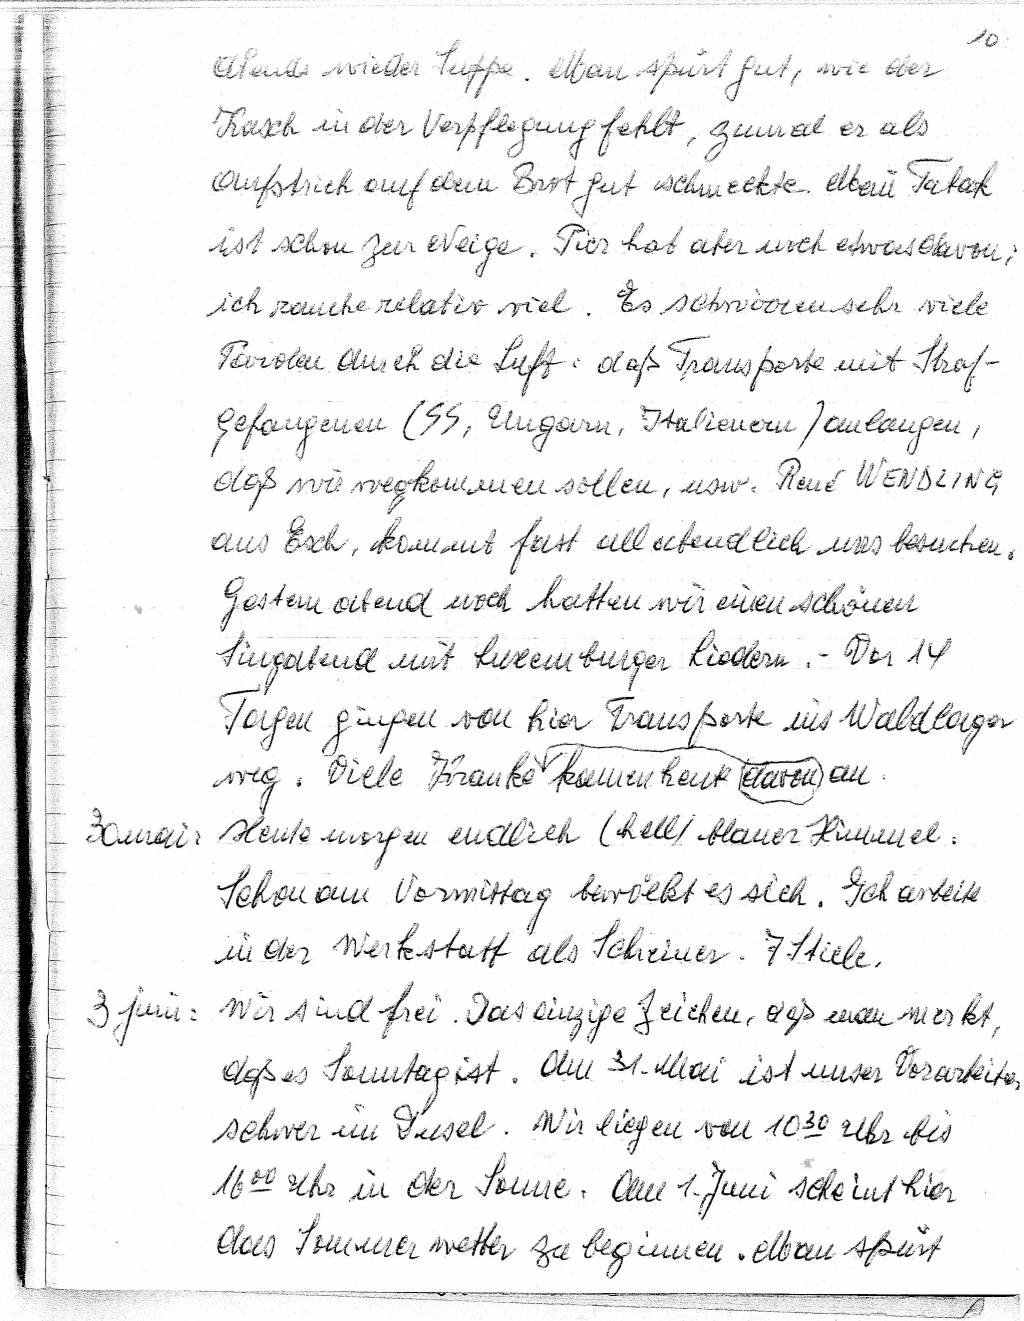 10
abends wieder Suppe. Man spürt gut, wie der
Kasch in der Verpflegung fehlt, zumal er als
Aufstrich auf dem Brot gut schmeckte. Mein Tabak
ist schon zur Neige. Pier hat aber noch etwas davon;
ich rauche relativ viel. Es schwirren sehr viele
Parolen durch die Luft: daß Transporte mit Straf-
gefangenen (SS, Ungarn, Italienern) anlangen,
daß wir wegkommen sollen, usw. René WENDLING
aus Esch, kommt fast allabendlich uns besuchen.
Gestern abend noch hatten wir einen schönen
Singabend mit Luxemburger Liedern. - Vor 14
Tagen gingen von hier Transporte ins Waldlager
weg. Viele Kranke kamen heute davon an.
30 mai: Heute morgen endlich (hell) blauer Himmel.
Schon am Vormittag bewölkt es sich. Ich arbeite
in der Werkstatt als Schreiner. 7 Stiele.
3 juni: Wir sind frei. Das einzige Zeichen, daß man merkt,
daß es Sonntag ist. Am 31. Mai ist unser Vorarbeiter
schwer im Dusel. Wir liegen von 10 30 Uhr bis
16 00 Uhr in der Sonne. Am 1. Juni scheint hier
das Sommerwetter zu beginnen. Man spürt